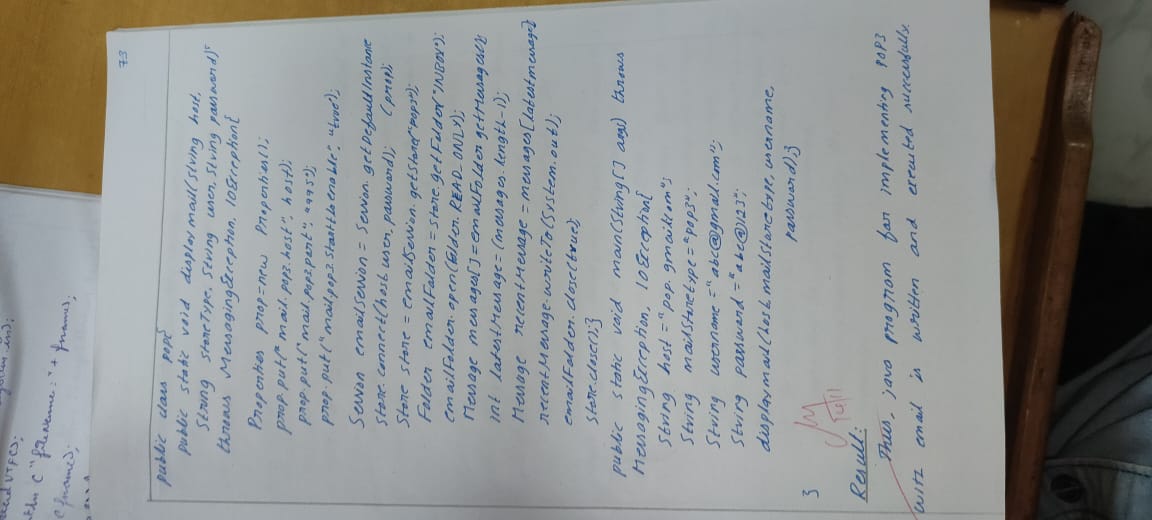 ln ("fileName:" + fname);
(fname);
73
public class pop{
public static void displaymail(String host,
String storeType, String user, String password)
throws MessagingException, IOException{
Properties prop=new Properties();
prop.put("mail.pop3.host", host);
prop.put("mail.pop3.port", "995");
prop.put("mail.pop3.starttls.enable", "true");
Session emailSession = Session.getDefaultInstance
Store.connect(host, user, password); (prop);
Store store = emailSession.getStore("pop3");
Folder emailFolder = store.getFolder("INBOX");
emailFolder.open(Folder.READ_ONLY);
Message messages[]=emailFolder.getMessages();
int latestMessage=(messages.length-1);
Message recentMessage=messages[latestmessage]
recentMessage.writeTo(System.out);
emailFolder.close(true);
store.close();}
public static void main(String[] args) throws
MessagingException, IOException{
String host="pop.gmail.com";
String mailStoretype="pop3";
String username="abc@gmail.com";
String password="abc@123";
displaymail(host, mailStoretype, username,
password);}
}
14/11
Result:
Thus, java program for implementing POP3
with email is written and executed successfully.